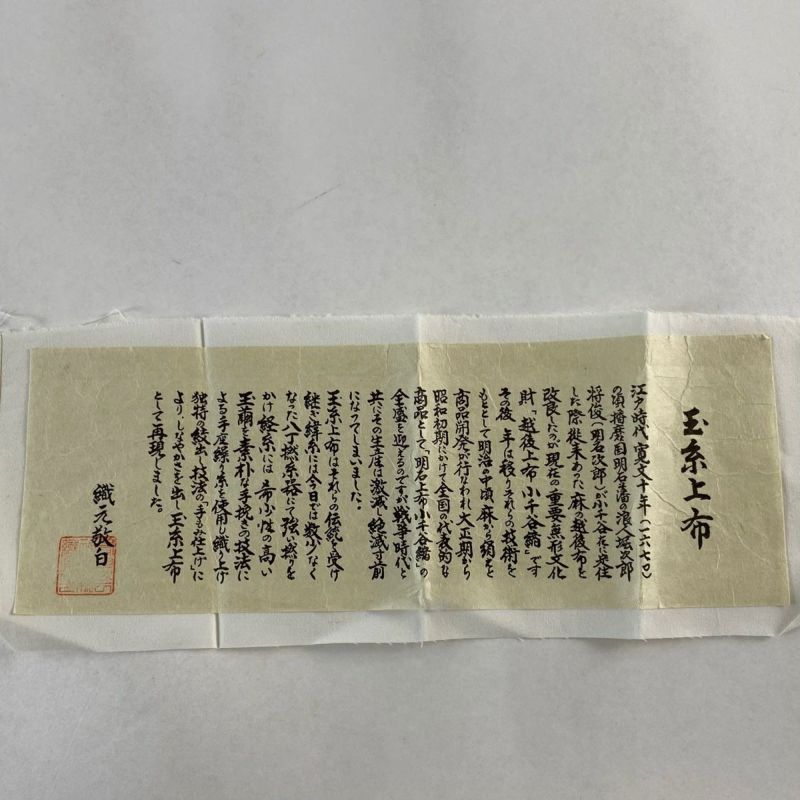 玉糸上布
江戸時代(寛文十年(一六七〇)
の頃播磨国明石藩の浪人堀次郎
将俊(明石次郎)が小千谷在に来住
した際従来あった麻の越後布を
改良したのが現在の重要無形文化
財「越後上布小千谷縮」です
その後年は移りそれらの技術を
もととして明治の中頃麻から絹を
商品開発が行なわれ大正期から
昭和初期にかけて全国の代表的な
商品として、「明石上布小千谷縮」の
全盛を迎えるのですが戦争時代と
共にその生産は激減し絶滅寸前
になってしまいました。
玉糸上布はそれらの伝統を受け
継ぎ緯糸には今日では数少なく
なった八丁撚糸器にて強い撚りを
かけ経糸には希少性の高い
玉繭を素朴な手挽きの技法に
よる手座繰り糸を使用し織り上げ
独特の絞出し技法の「手もみ仕上げ」に
より、しなやかさを出し玉糸上布
として再現しました。
織元敬白